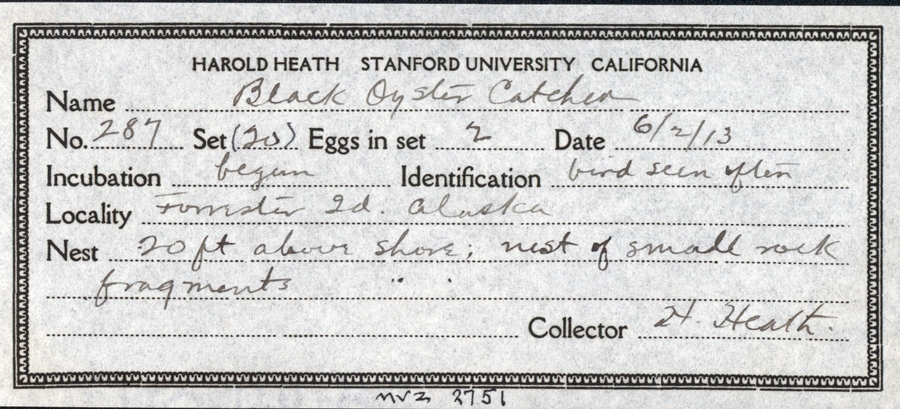 HAROLD HEATH STANFORD UNIVERSITY CALIFORNIA
Name Black Oyster Catcher
No. 287 Set (20) Eggs in set 2 Date 6/2/13
Incubation begun Identification bird seen often
Locality Forrester Id. Alaska
Nest 20 ft above shore; nest of small rock
fragments
Collector H. Heath.
MVZ 2751